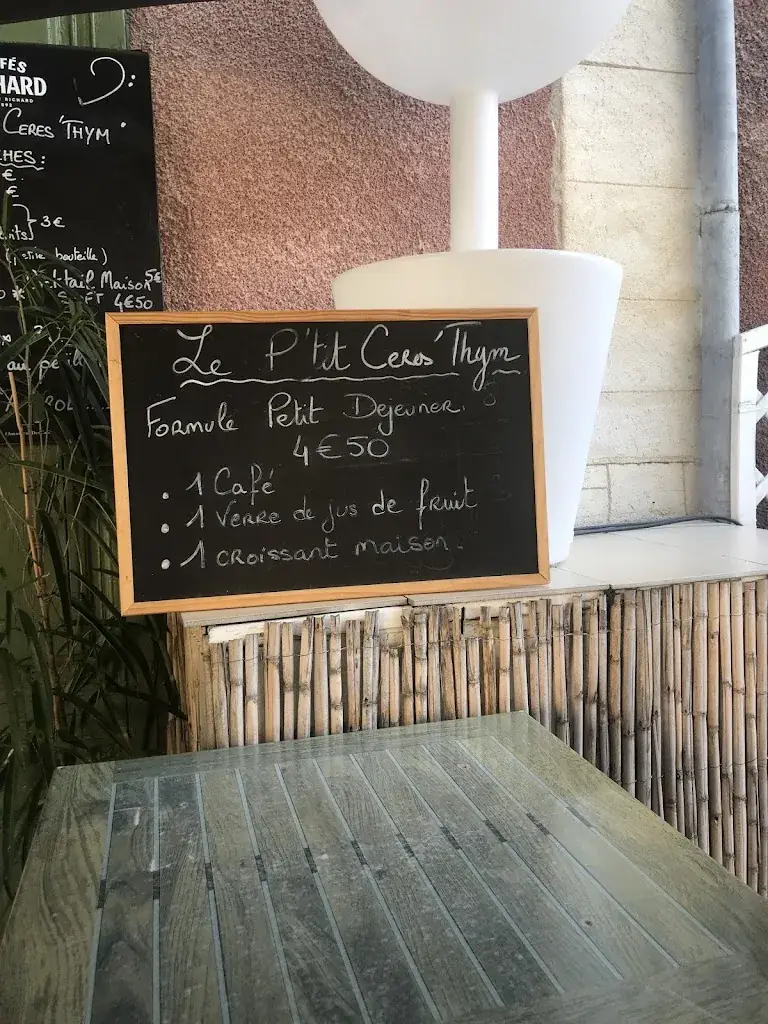 FÉS
HARD
RICHARD
CERES'THYM
HES:
€
€
3€
bouteille)
Maison 5€
4€50
Le P'tit Ceres'Thym
Formule Petit Dejeuner.
4€50
. 1 Café
. 1 Verre de jus de fruit
. 1 croissant maison.